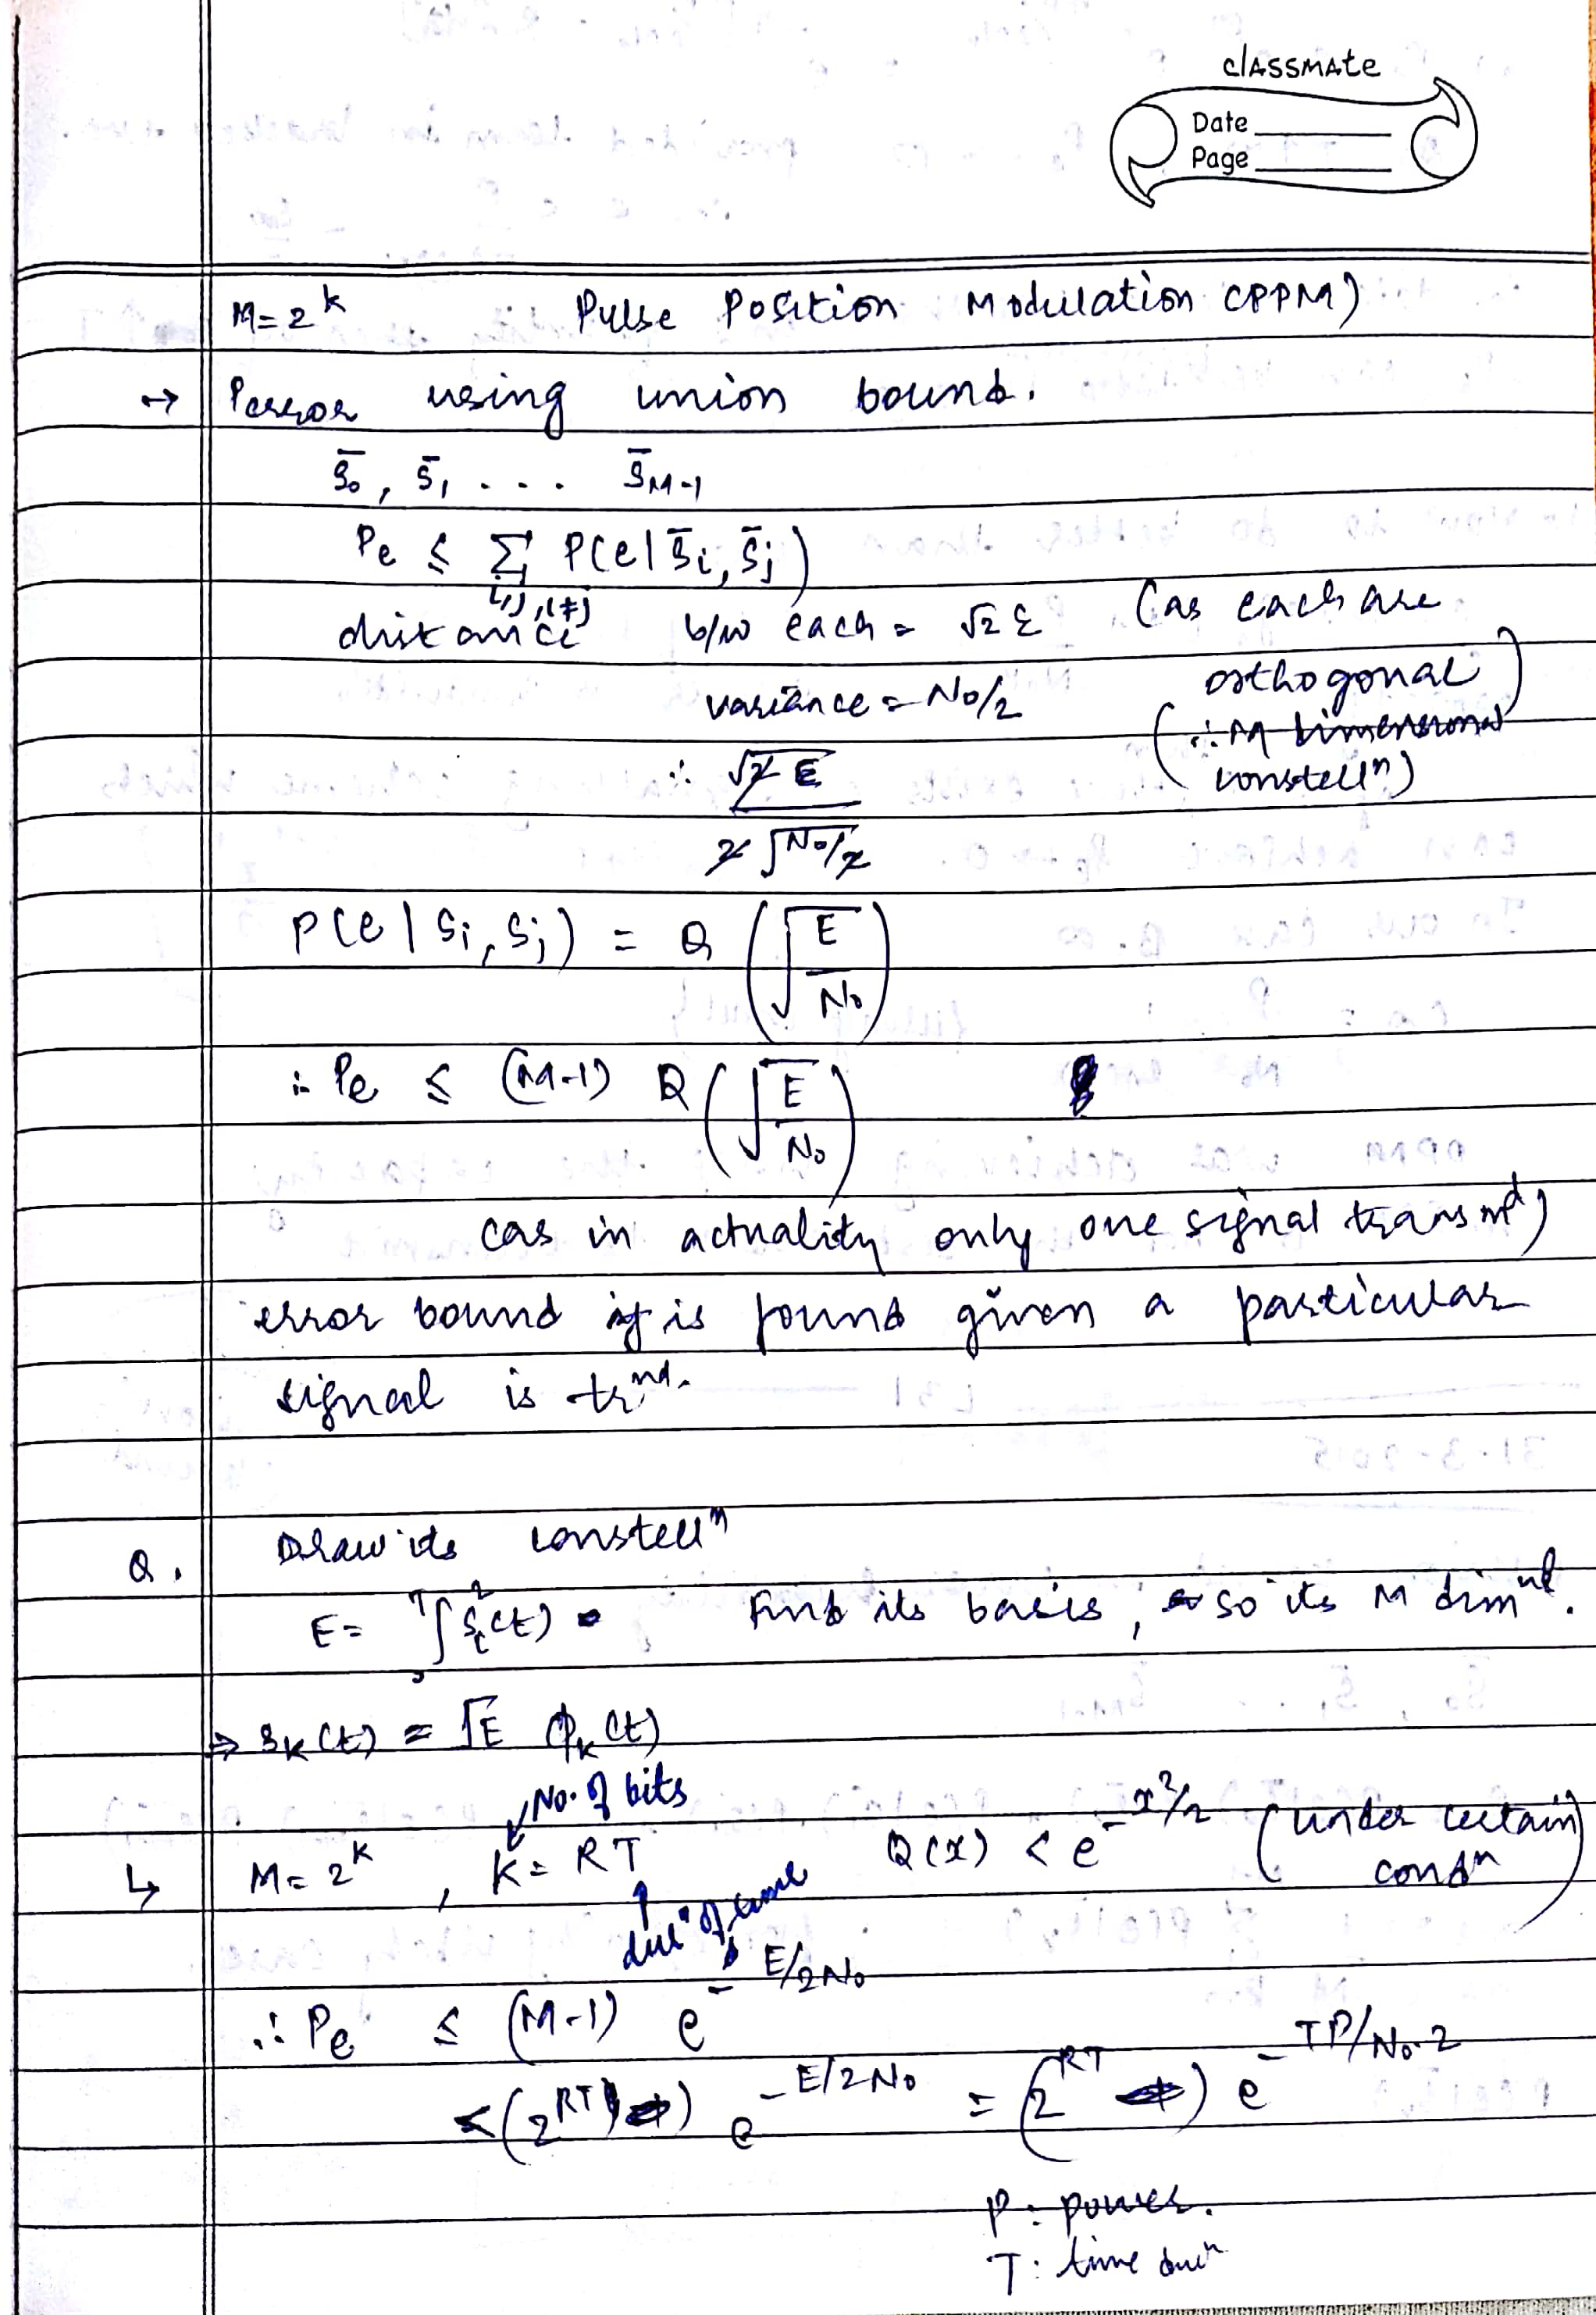 classmate
Date
Page
M=2^k Pulse Position Modulation (PPM)
→ Perror using union bound.
s̄₀, s̄₁ . . . s̄_{M-1}
Pe ≤ Σ_{i,j,i≠j} P(e|s̄i, s̄j)
distance b/w each = √2E (as each are
orthogonal)
variance = N₀/2
(∴ M dimensional
constellⁿ)
∴ √2E
2√N₀/2
P(e|si, sj) = Q(√(E/N₀))
∴ Pe ≤ (M-1) Q(√(E/N₀))
(as in actuality only one signal transmᵈ)
error bound is found given a particular
signal is trⁿᵈ.
Q. Draw its constellⁿ
E = ∫₀ᵀ sᵢ²(t) Find its basis, so its M dimⁿˡ.
⇒ s_k(t) = √E φ_k(t)
No. of bits
↳ M = 2^k, K = RT Q(x) < e^{-x²/2} (under certain
condⁿ)
durⁿ of time
∴ Pe ≤ (M-1) e^{-E/2N₀}
<(2^{RT}) e^{-E/2N₀} = (2^{RT}) e^{-TP/N₀·2}
P: power.
T: time durⁿ